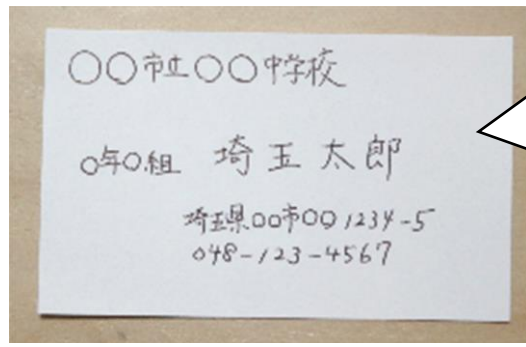 ○○市立○○中学校
○年○組 埼玉太郎
埼玉県○○市○○1234-5
048-123-4567